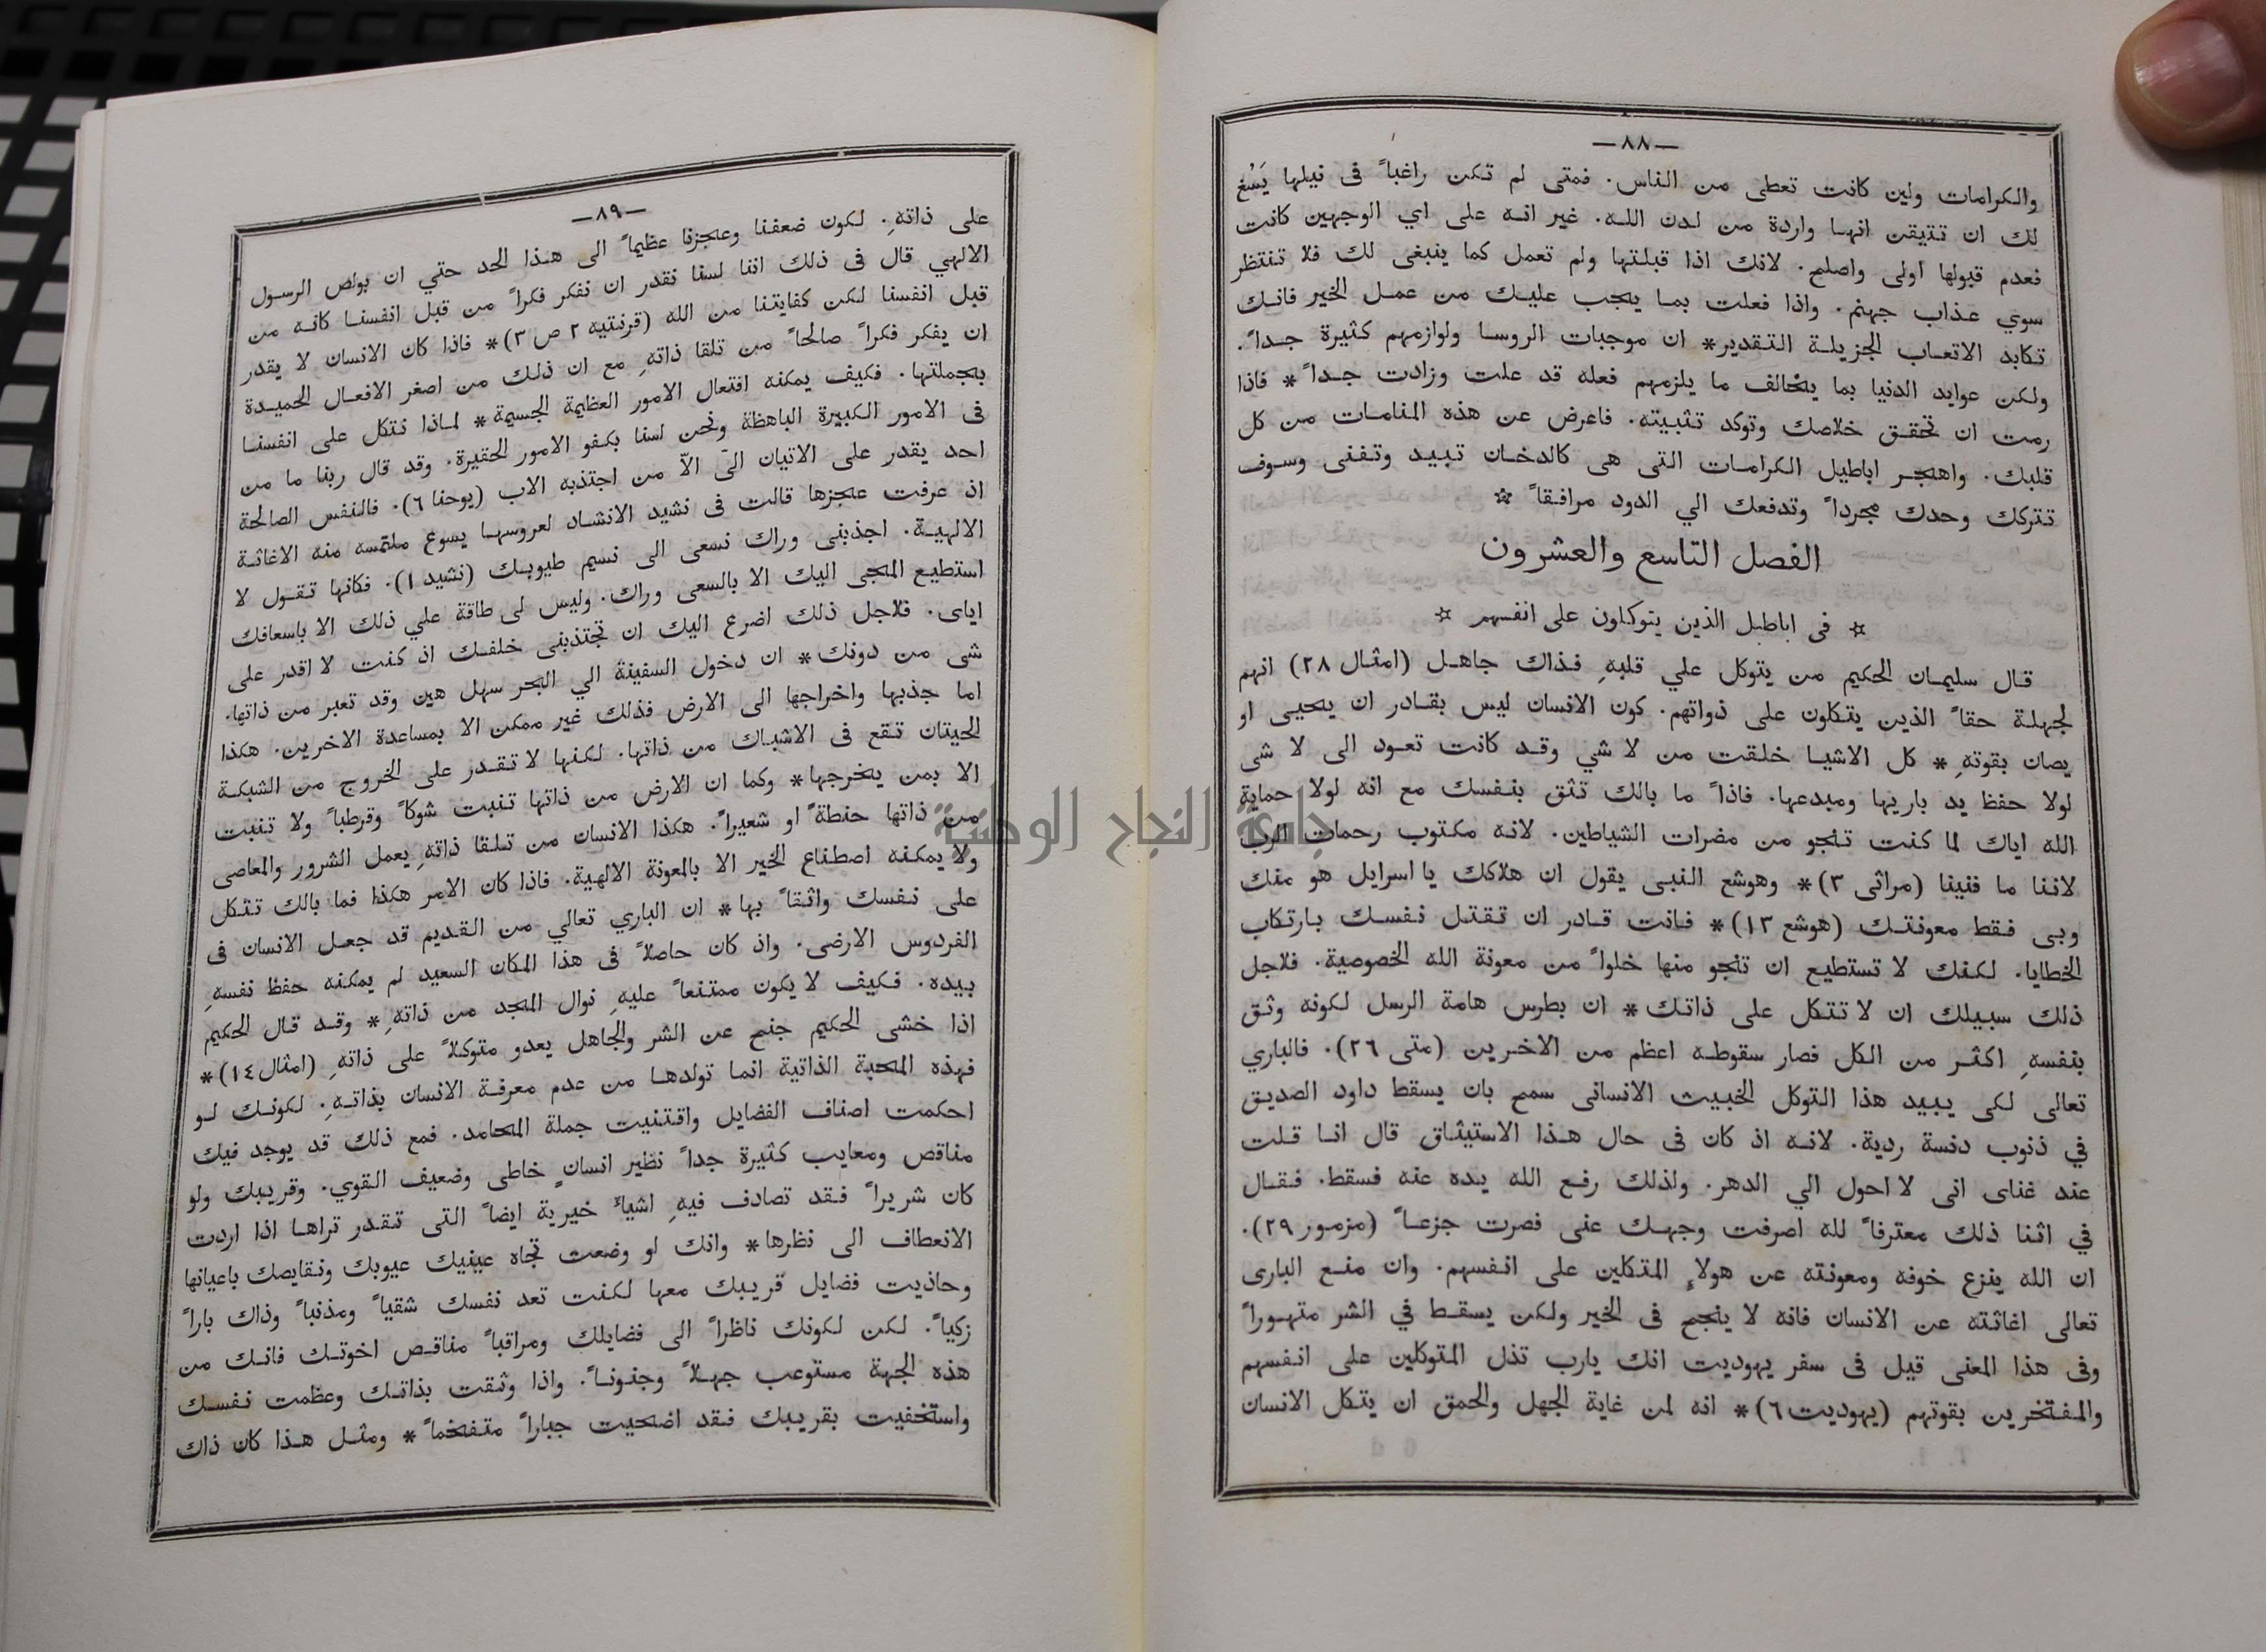 —٨٨—
والكرامات ولين كانت تعطى من الناس. فمتى لم تكن راغباً فى نيلها يَسُغ
لك ان تتيقن انها واردة من لدن الله. غير انه على اي الوجهين كانت
فعدم قبولها اولى واصلح. لانك اذا قبلتها ولم تعمل كما ينبغى لك فلا تنتظر
سوي عذاب جهنم. واذا فعلت بما يجب عليك من عمل الخير فانك
تكابد الاتعاب الجزيلة التقدير* ان موجبات الروسا ولوازمهم كثيرة جداً.
ولكن عوايد الدنيا بما يخالف ما يلزمهم فعله قد علت وزادت جداً* فاذا
رمت ان تحقق خلاصك وتوكد تثبيته. فاعرض عن هذه المنامات من كل
قلبك. واهجر اباطيل الكرامات التى هى كالدخان تبيد وتفنى وسوف
تتركك وحدك مجرداً وتدفعك الي الدود مرافقاً ☆
الفصل التاسع والعشرون
☆ فى اباطيل الذين يتوكلون على انفسهم ☆
قال سليمان الحكيم من يتوكل علي قلبهِ فذاك جاهل (امثال ٢٨) انهم
لجهلة حقاً الذين يتكلون على ذواتهم. كون الانسان ليس بقادر ان يحيى او
يصان بقوتهِ* كل الاشيا خلقت من لا شي وقد كانت تعود الى لا شى
لولا حفظ يد باريها ومبدعها. فاذاً ما بالك تثق بنفسك مع انه لولا حماية
الله اياك لما كنت تنجو من مضرات الشياطين. لانه مكتوب رحمات الرب
لاننا ما فنينا (مراثى ٣)* وهوشع النبى يقول ان هلاكك يا اسرايل هو منك
وبى فقط معونتك (هوشع ١٣)* فانت قادر ان تقتل نفسك بارتكاب
الخطايا. لكنك لا تستطيع ان تنجو منها خلواً من معونة الله الخصوصية. فلاجل
ذلك سبيلك ان لا تتكل على ذاتك* ان بطرس هامة الرسل لكونه وثق
بنفسهِ اكثر من الكل فصار سقوطه اعظم من الاخرين (متى ٢٦). فالباري
تعالى لكى يبيد هذا التوكل الخبيث الانسانى سمح بان يسقط داود الصديق
في ذنوب دنسة ردية. لانه اذ كان فى حال هذا الاستيثاق قال انا قلت
عند غناى انى لا احول الي الدهر. ولذلك رفع الله يده عنه فسقط. فقال
في اثنا ذلك معترفاً لله اصرفت وجهك عنى فصرت جزعاً (مزمور ٢٩).
ان الله ينزع خوفه ومعونته عن هولاءِ المتكلين على انفسهم. وان منع البارى
تعالى اغاثته عن الانسان فانه لا ينجح فى الخير ولكن يسقط في الشر متهوراً
وفى هذا المعنى قيل فى سفر يهوديت انك يارب تذل المتوكلين على انفسهم
والمفتخرين بقوتهم (يهوديت ٦)* انه لمن غاية الجهل والحمق ان يتكل الانسان
—٨٩—
على ذاتهِ. لكون ضعفنا وعجزنا عظيماً الى هذا الحد حتي ان بولص الرسول
الالهي قال فى ذلك اننا لسنا نقدر ان نفكر فكراً من قبل انفسنا كانه من
قبل انفسنا لكن كفايتنا من الله (قرنتيه ٢ ص ٣)* فاذا كان الانسان لا يقدر
ان يفكر فكراً صالحاً من تلقا ذاتهِ مع ان ذلك من اصغر الافعال الحميدة
بجملتها. فكيف يمكنه افتعال الامور العظيمة الجسيمة* لماذا نتكل على انفسنا
فى الامور الكبيرة الباهظة ونحن لسنا بكفو الامور الحقيرة. وقد قال ربنا ما من
احد يقدر على الاتيان الىّ الاّ من اجتذبه الاب (يوحنا ٦). فالنفس الصالحة
اذ عرفت عجزها قالت فى نشيد الانشاد لعروسها يسوع ملتمسه منه الاغاثة
الالهية. اجذبنى وراك نسعى الى نسيم طيوبك (نشيد ١). فكانها تقول لا
استطيع المجى اليك الا بالسعى وراك. وليس لى طاقة علي ذلك الا باسعافك
اياى. فلاجل ذلك اضرع اليك ان تجتذبنى خلفك اذ كنت لا اقدر على
شى من دونك* ان دخول السفينة الي البحر سهل هين وقد تعبر من ذاتها.
اما جذبها واخراجها الى الارض فذلك غير ممكن الا بمساعدة الاخرين. هكذا
الحيتان تقع فى الاشباك من ذاتها. لكنها لا تقدر على الخروج من الشبكة
الا بمن يخرجها* وكما ان الارض من ذاتها تنبت شوكاً وقرطباً ولا تنبت
من ذاتها حنطةً او شعيراً. هكذا الانسان من تلقا ذاتهِ يعمل الشرور والمعاصى
ولا يمكنه اصطناع الخير الا بالمعونة الالهية. فاذا كان الامر هكذا فما بالك تتكل
على نفسك واثقاً بها* ان الباري تعالي من القديم قد جعل الانسان فى
الفردوس الارضى. واذ كان حاصلاً فى هذا المكان السعيد لم يمكنه حفظ نفسهِ
بيده. فكيف لا يكون ممتنعاً عليهِ نوال المجد من ذاتهِ* وقد قال الحكيم
اذا خشى الحكيم جنح عن الشر والجاهل يعدو متوكلاً على ذاتهِ (امثال ١٤)*
فهذه المحبة الذاتية انما تولدها من عدم معرفة الانسان بذاتهِ. لكونك لو
احكمت اصناف الفضايل واقتنيت جملة المحامد. فمع ذلك قد يوجد فيك
مناقص ومعايب كثيرة جداً نظير انسانٍ خاطى وضعيف القوي. وقريبك ولو
كان شريراً فقد تصادف فيهِ اشياءً خيرية ايضاً التى تقدر تراها اذا اردت
الانعطاف الى نظرها* وانك لو وضعت تجاه عينيك عيوبك ونقايصك باعيانها
وحاذيت فضايل قريبك معها لكنت تعد نفسك شقياً ومذنباً وذاك باراً
زكياً. لكن لكونك ناظراً الى فضايلك ومراقباً مناقص اخوتك فانك من
هذه الجهة مستوعب جهلاً وجنوناً. واذا وثقت بذاتك وعظمت نفسك
واستخفيت بقريبك فقد اضحيت جباراً متفخماً* ومثل هذا كان ذاك
جامعة النجاح الوطنية